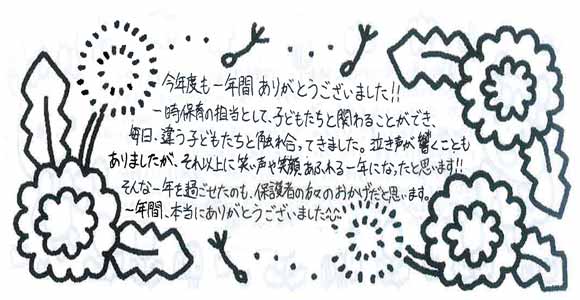 今年度も一年間ありがとうございました!!
一時保育の担当として、子どもたちと関わることができ、
毎日、違う子どもたちと触れ合ってきました。泣き声が響くことも
ありましたが、それ以上に笑い声や笑顔あふれる一年になったと思います!!
そんな一年を過ごせたのも、保護者の方々のおかげだと思います。
一年間、本当にありがとうございました^^